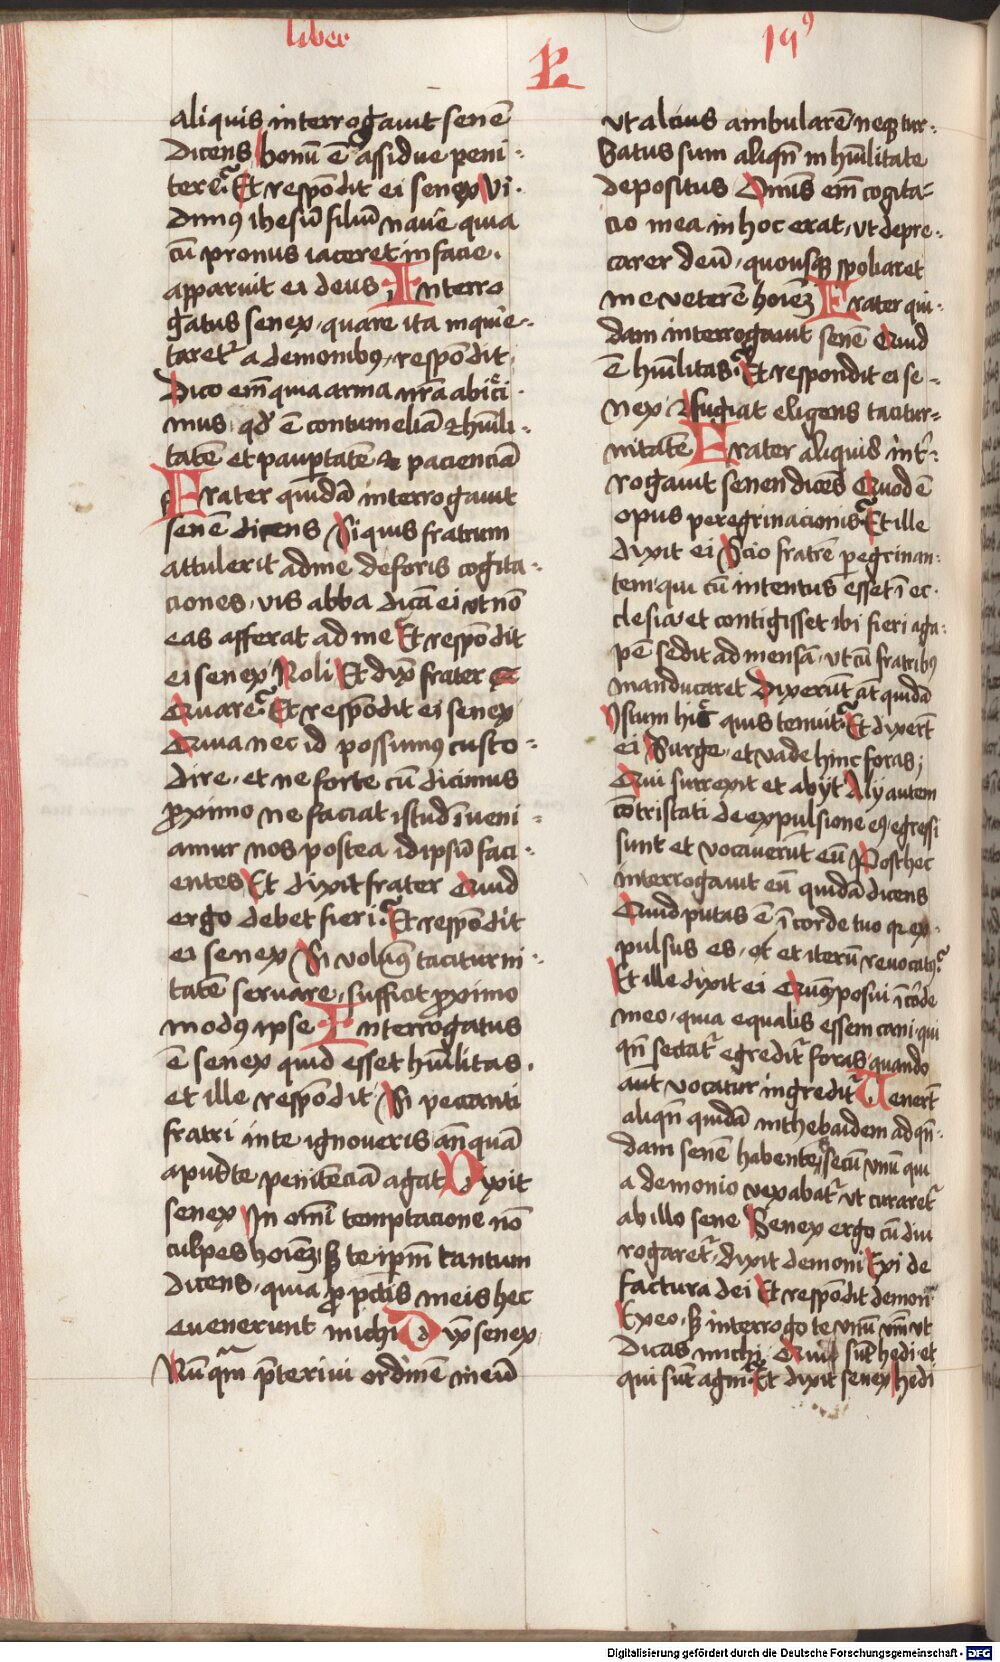 liber
P
19
aliquis interrogauit senē
dicens bonū ē assidue peni-
tere Et respōdit ei senex Vi-
dimꝰ ihesū filiū naue quia
cū pronus iaceret in facie
apparuit ei deus Interro
gatus senex quare ita inquie-
taretᷣ a demonibꝰ respōdit
Dico em̄ quia arma nr̄a abici-
mus qd̓ ē contumeliā ⁊ hūili-
tatē et pauꝑtatē ⁊ pacienciā
Frater quidā interrogauit
senē dicens Si quis fratrum
attulerit ad me deforis cogita-
ciones vis abba dicā ei vt nō
eas afferat ad me Et respōdit
ei senex Noli Et dix̄ frater
Quare Et respōdit ei senex
Quia nec id possumꝰ custo-
dire et ne forte cū dicimus
ꝓximo ne faciat istud īueni-
amur nos postea idipsū faci-
entes Et dixit frater Quid
ergo debet fieri Et respōdit
ei senex Si volumꝰ taciturni-
tatē seruare sufficit ꝓximo
modꝰ ipse Interrogatus
ē senex quid esset hūilitas
et ille respōdit Si peccanti
fratri in te ignoueris anqūā
apud te penitēciā agat Dixit
senex In om̄i temptacione nō
culpes hoiēꝫ sꝫ te ip̄m tantum
dicens quia ꝓ pctīs meis hec
euenerunt michi Dix̄ senex
Nūqᷓm p̄teriui ordinē meū
vt alcius ambularē neqꝫ tur-
batus sum aliqn̄ in hūilitate
depositus Om̄is em̄ cogita-
cio mea in hoc erat vt depre-
carer deū quousqꝫ spoliaret
me veterē hoiēꝫ Frater qui-
dam interrogauit senē Quid
ē hūilitas Et respondit ei se-
nex Vt fugiat eligens tacitur-
nitatē Frater aliquis int̓-
rogauit senen dicēs Quod ē
opus peregrinacionis Et ille
dixit ei Scio fratrē ꝑegrinan-
tem qui cū intentus esset ī ec-
clesia et contigisset ibi fieri aga-
pē sedit ad mensā vt cū fratribꝰ
manducaret Dixerūt āt quidā
Istum hic quis tenuit Et dixert̄
ei Surge et vade hinc foras
Qui surrexit et abijt Alij autem
cōtristati de expulsione eꝰ egressi
sunt et vocauerūt eū Post hec
interrogauit eū quidā dicens
Quid putas ē ī corde tuo qꝛ ex-
pulsus es et iterū reuocatꝰ
Et ille dixit ei Qm̄ posui ī corde
meo quia equalis essem cani qui
qn̄ sectatᷣ egreditᷣ foras quando
aūt vocatur ingreditᷣ Venert̄
aliqn̄ quidā in thebaidem ad qn̄-
dam senē habentē secū vnū qui
a demonio vexabatᷣ vt curaretᷣ
ab illo sene Senex ergo cū diu
rogaretᷣ dixit demoni Exi de
factura dei Et respōdit demon
Exeo sꝫ interrogo te vnū vm̄ vt
dicas michi Qui sūt hedi et
qui sūt agni Et dixit senex hedi
Digitalisierung gefördert durch die Deutsche Forschungsgemeinschaft - DFG